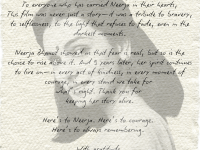 To everyone who has carried Neerja in their hearts,
This film was never just a story—it was a tribute to bravery,
to selflessness, to the light that refuses to fade, even in the
darkest moments.
Neerja Bhanot showed us that fear is real, but so is the
choice to rise above it. And 9 years later, her spirit continues
to live on—in every act of kindness, in every moment of
courage, in every stand we take for
what's right. Thank you for
keeping her story alive.
Here's to Neerja. Here's to courage.
Here's to always remembering.
With gratitude